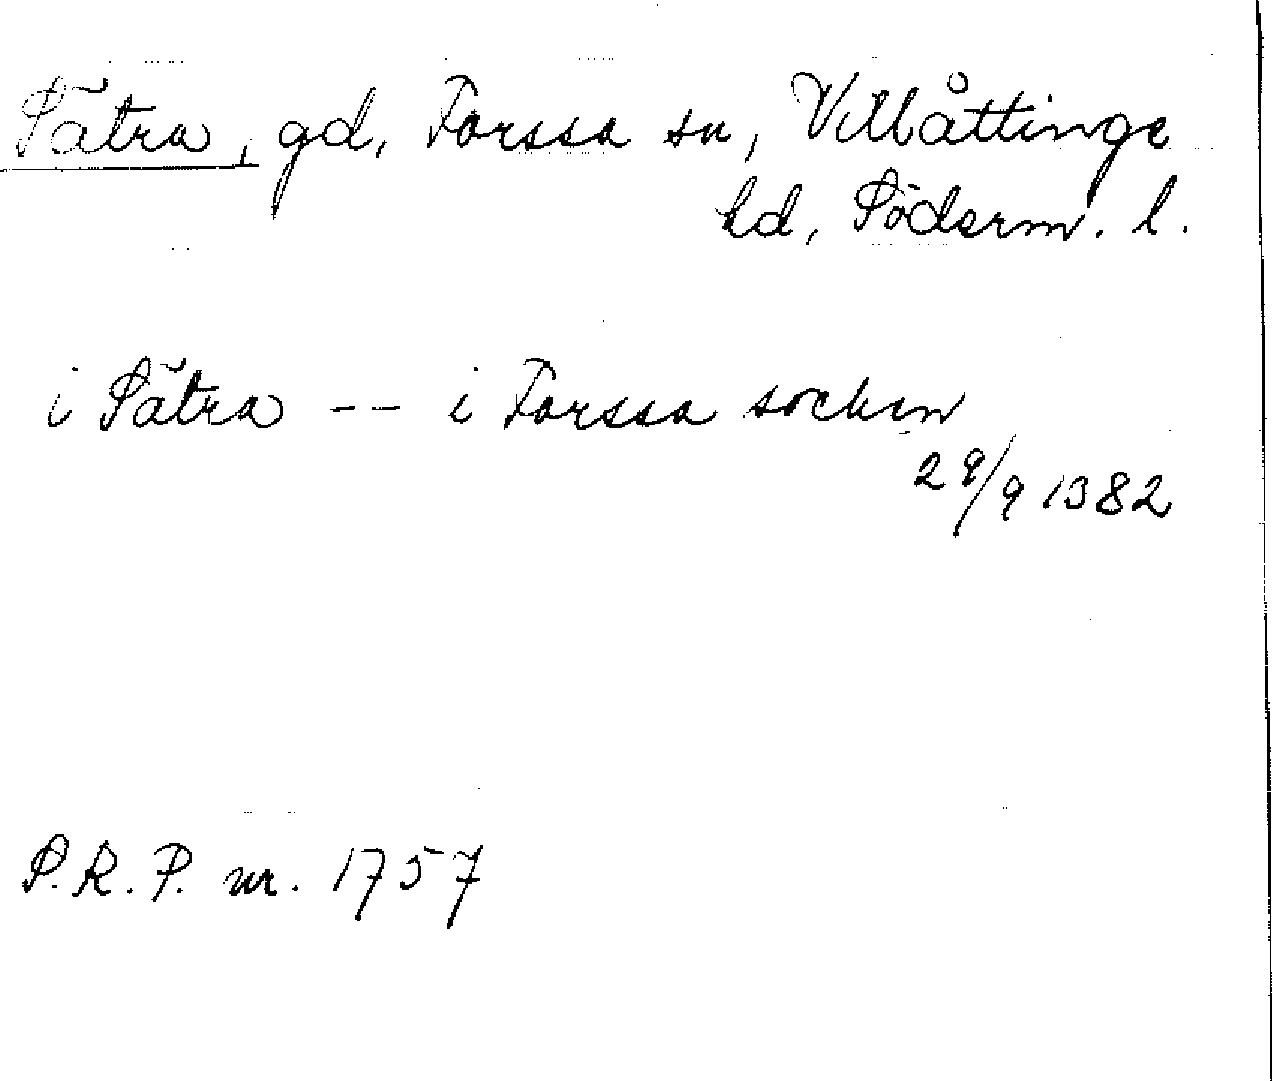 Sätra, gd, Forssa sn, Villåttinge
hd, Söderm. l.
i Sätra -- i Forssa socken
29/9 1382
S.R.P. nr. 1757